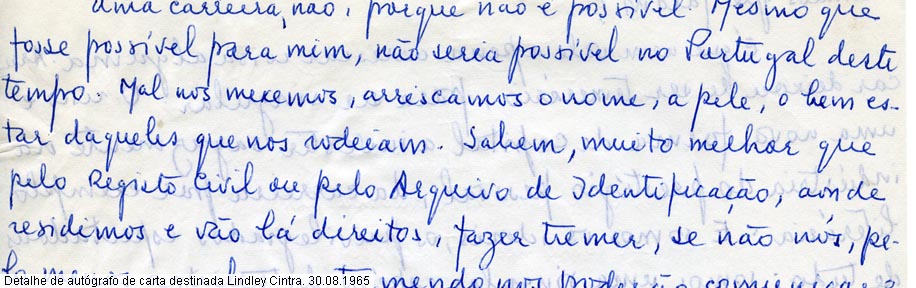 uma carreira, não, porque não é possível. Mesmo que
fosse possível para mim, não seria possível no Portugal deste
tempo. Mal nos mexemos, arriscamos o nome, a pele, o bem es-
tar daqueles que nos rodeiam. Sabem, muito melhor que
pelo Registo Civil ou pelo Arquivo de Identificação, aonde
residimos e vão lá direitos, fazer tremer, se não nós, pe-
Detalhe de autógrafo de carta destinada Lindley Cintra. 30.08.1965